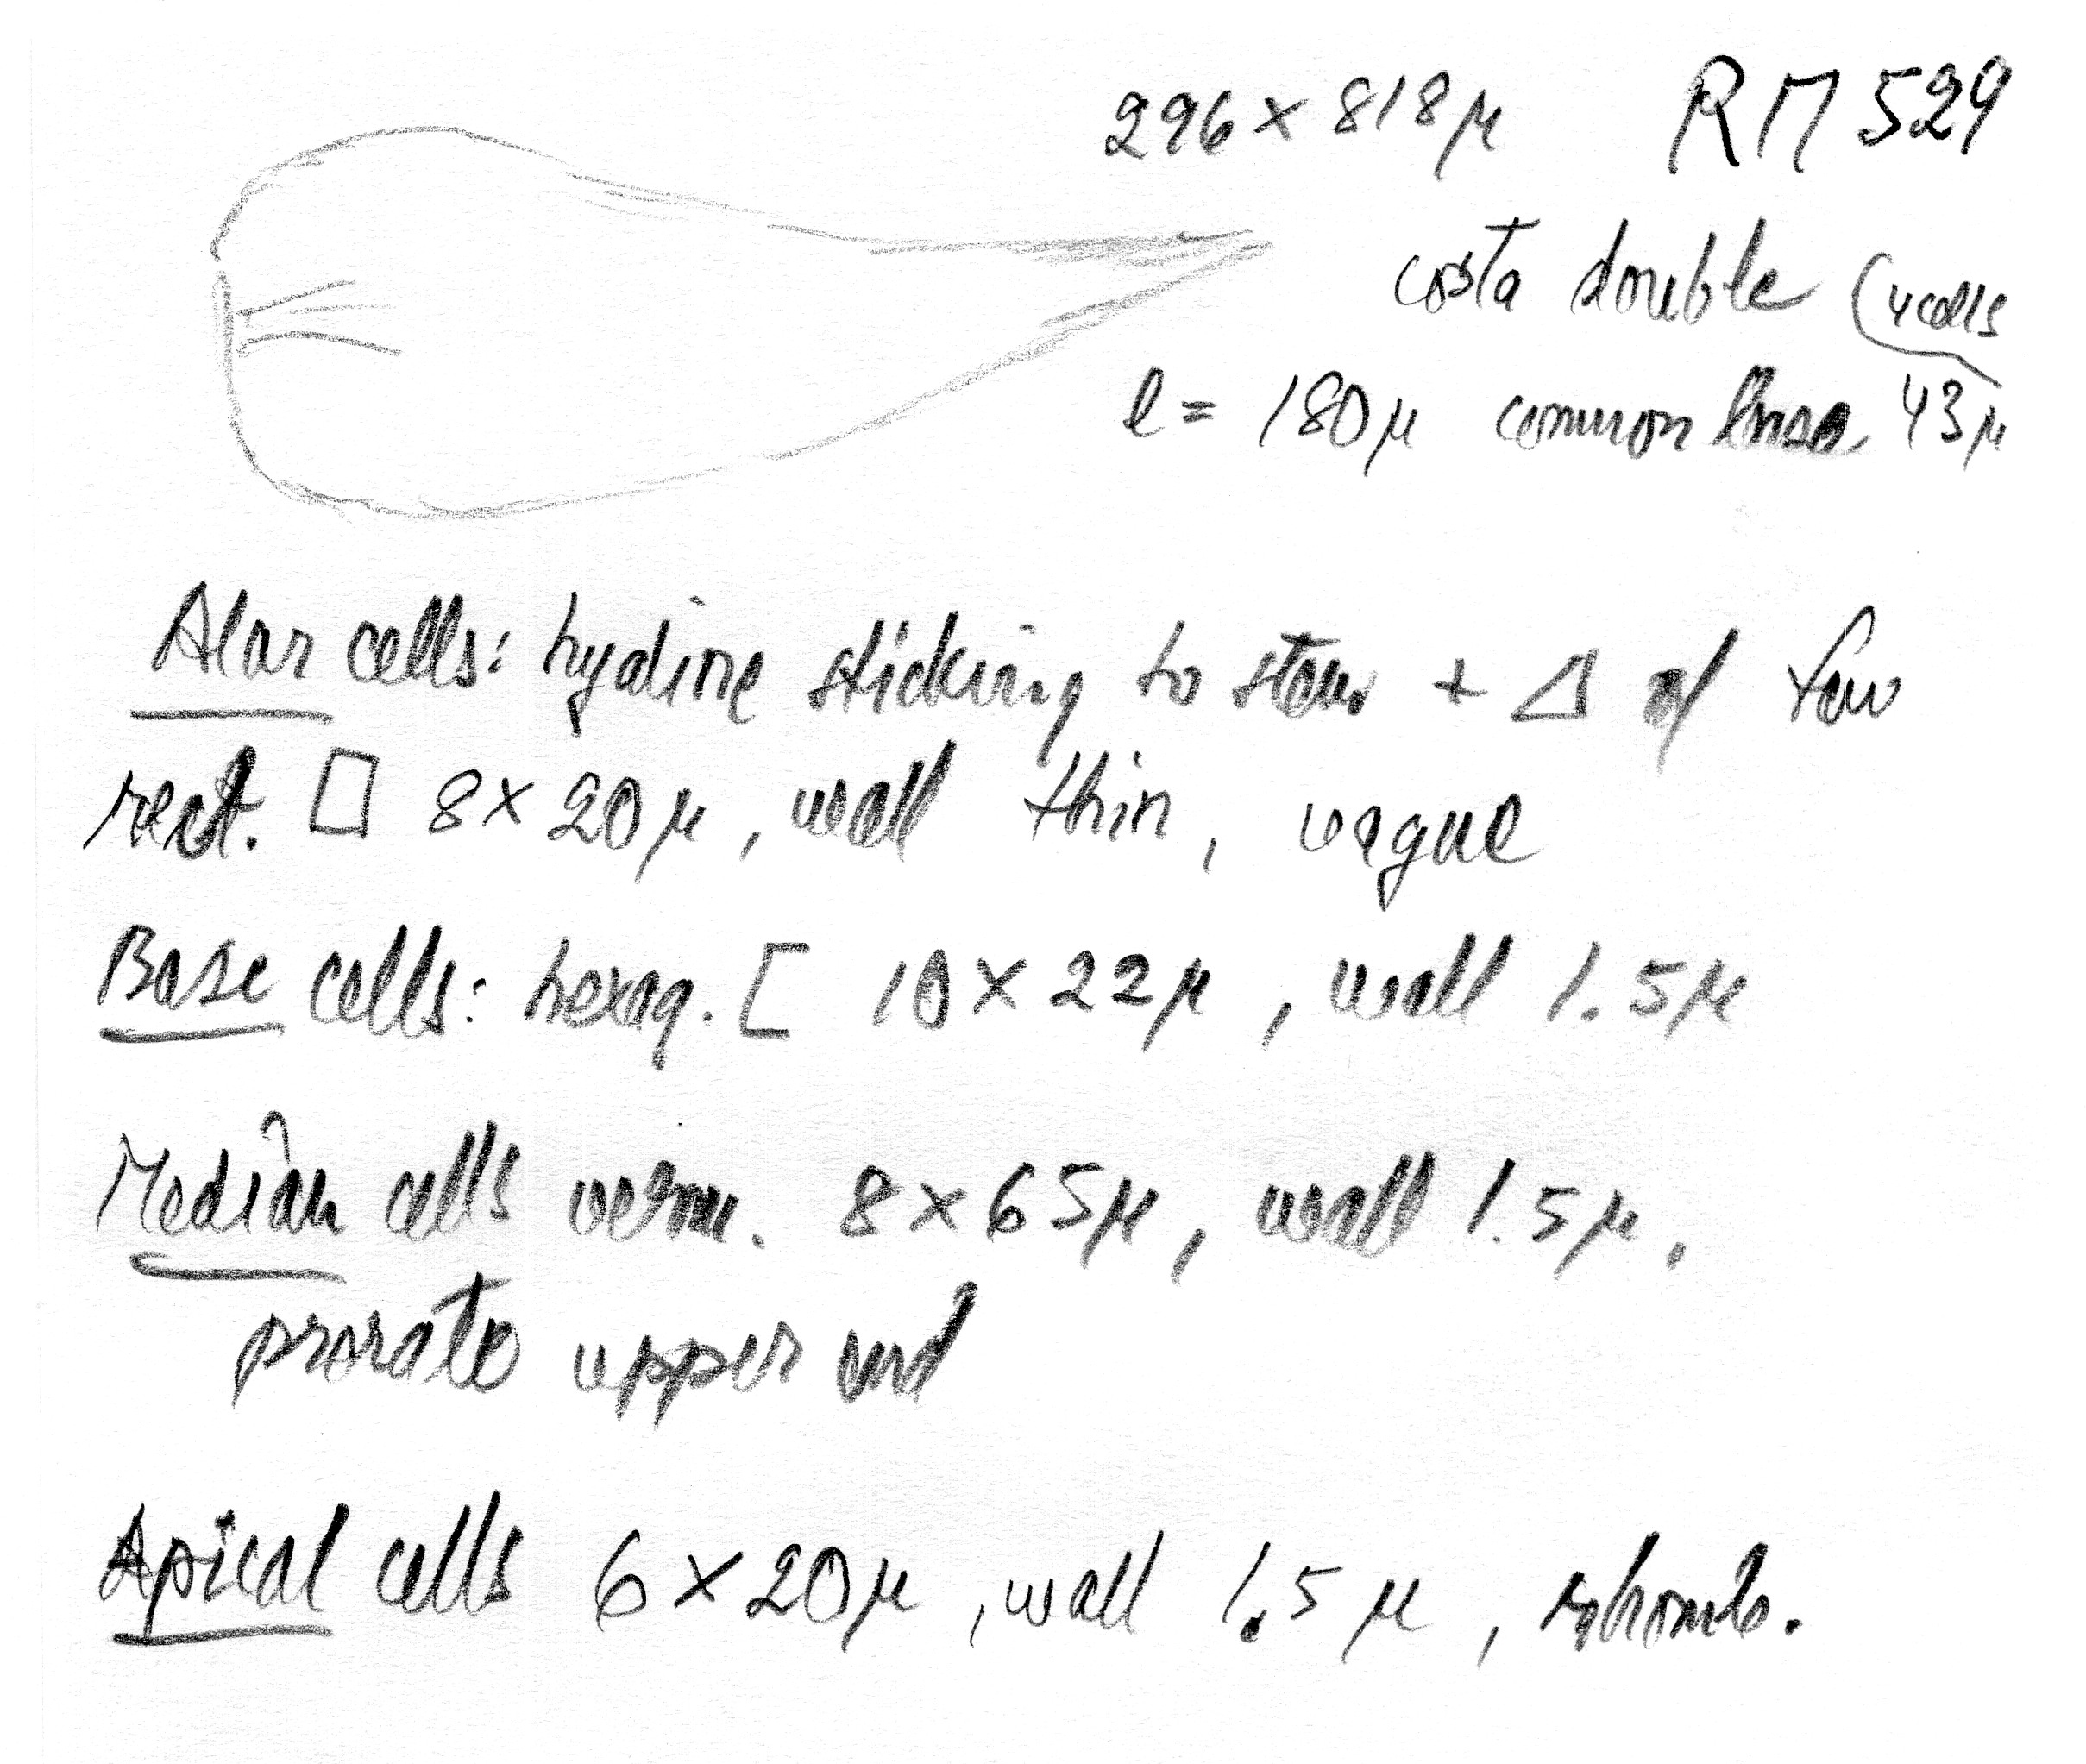 296 × 818 µ RM 529
costa double (4 cells
l = 180 µ common base, 43 µ
Alar cells: hyaline sticking to stem + Δ of few
rect. □ 8 × 20 µ, wall thin, vague
Base cells: hexag. [ 10 × 22 µ, wall 1.5 µ
Median cells verm. 8 × 65 µ, wall 1.5 µ,
prorate upper end
Apical cells 6 × 20 µ, wall 1.5 µ, rhomb.